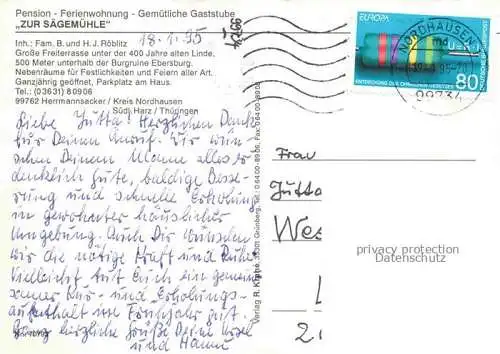 Pension - Ferienwohnung - Gemütliche Gaststube
"ZUR SÄGEMÜHLE"
18.1.95
Inh.: Fam. B. und H. J. Röblitz
Große Freiterrasse unter der 400 Jahre alten Linde.
500 Meter unterhalb der Burgruine Ebersburg.
Nebenräume für Festlichkeiten und Feiern aller Art.
Ganzjährig geöffnet, Parkplatz am Haus.
Tel.: (03631) 80906
99762 Herrmannsacker / Kreis Nordhausen
Südl. Harz / Thüringen
Liebe Jutta! Herzlichen Dank
für Deinen Anruf. Wir wün-
schen Deinem Manne alles er-
denklich Gute, baldige Besse-
rung und schnelle Erholung
in gewohnter häuslicher
Umgebung. Auch Dir wünschen
wir die nötige Kraft und Ruhe.
Vielleicht tut Euch ein gemein-
samer Kur- und Erholungs-
aufenthalt im Frühjahr gut.
Ganz herzliche Grüße Deine
und Hanna
Verlag R. 35301 Grünberg, Tel.: 06400-8909, Fax: 06400-
EUROPA
DEUTSCHE BUNDESPOST
80
NORDHAUSEN
md
99734
99734
Frau
Jutta
Wes
2
privacy protection
Datenschutz